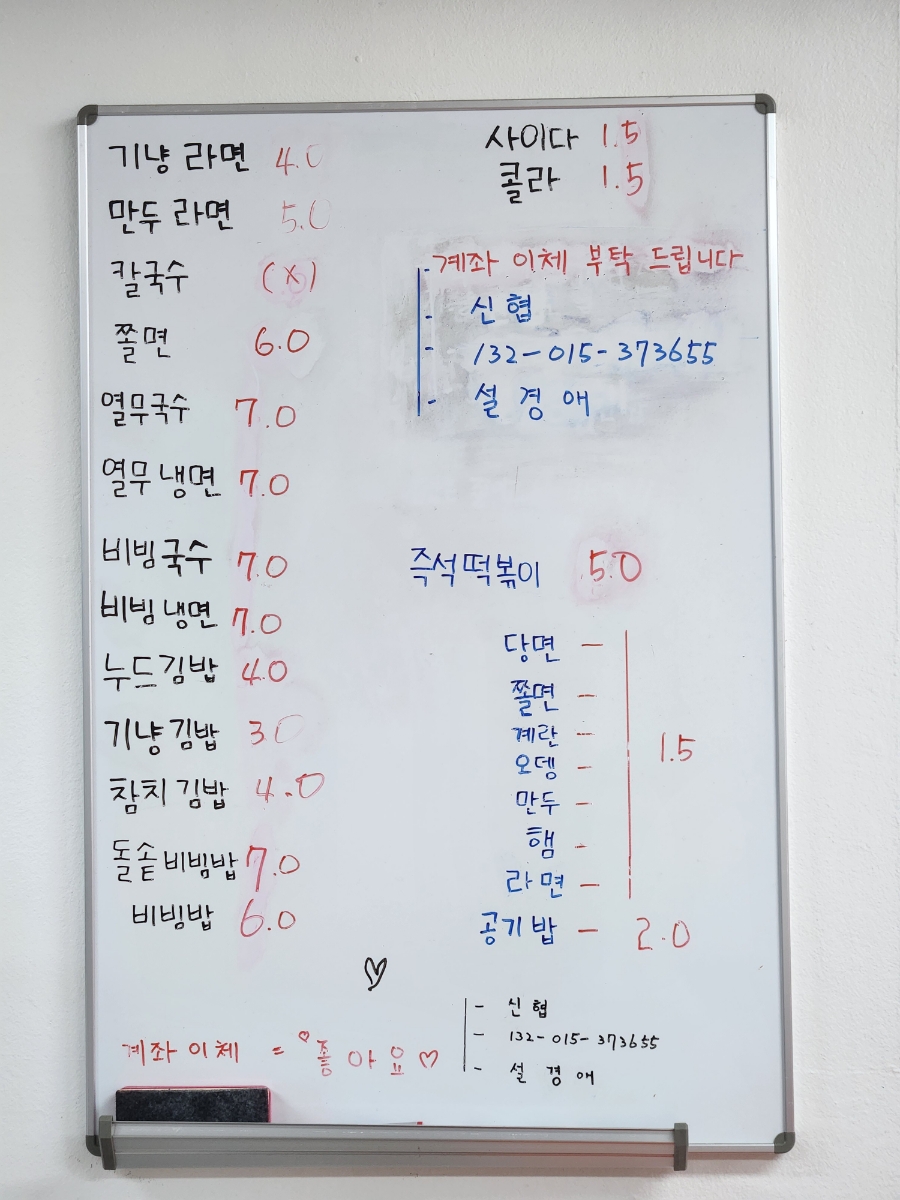 기냥 라면 4.0
만두 라면 5.0
칼국수 (x)
쫄면 6.0
열무국수 7.0
열무 냉면 7.0
비빔국수 7.0
비빔 냉면 7.0
누드김밥 4.0
기냥김밥 3.0
참치김밥 4.0
돌솥비빔밥 7.0
비빔밥 6.0
사이다 1.5
콜라 1.5
- 계좌 이체 부탁 드립니다
- 신협
- 132-015-373655
- 설경애
즉석떡볶이 5.0
당면 -
쫄면 -
계란 -
오뎅 - 1.5
만두 -
햄 -
라면 -
공기밥 - 2.0
계좌 이체 = ♡좋아요♡
- 신협
- 132-015-373655
- 설경애